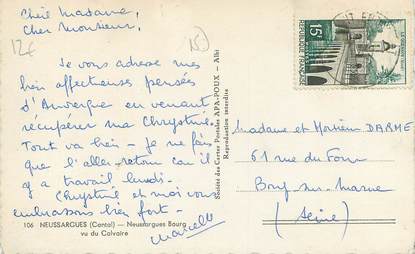 Chère Madame,
Cher Monsieur,
12€
Je vous adresse mes
bien affectueuses pensées
d'Auvergne en venant
récupérer ma Chrystine.
Tout va bien - je ne fais
que l'aller-retour car il
y a travail lundi.
Chrystine et moi vous
embrassons bien fort -
Marcelle
106 NEUSSARGUES (Cantal) — Neussargues Bourg
vu du Calvaire
Société des Cartes Postales APA-POUX - Albi
Reproduction interdite
15F
REPUBLIQUE FRANÇAISE
Madame et Monsieur DARME
61 rue du Four
Bry-sur-Marne
(Seine)